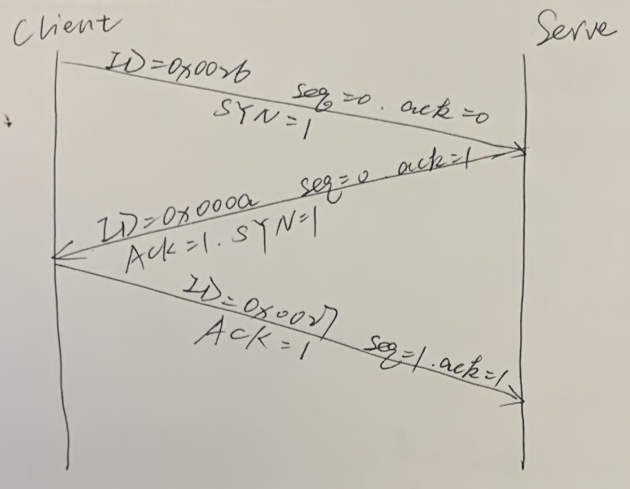 Client
Serve
ID=0x0026
seq=0. ack=0
SYN=1
seq=0 ack=1
ID=0x000a
Ack=1. SYN=1
ID=0x0027
ACK=1
seq=1. ack=1